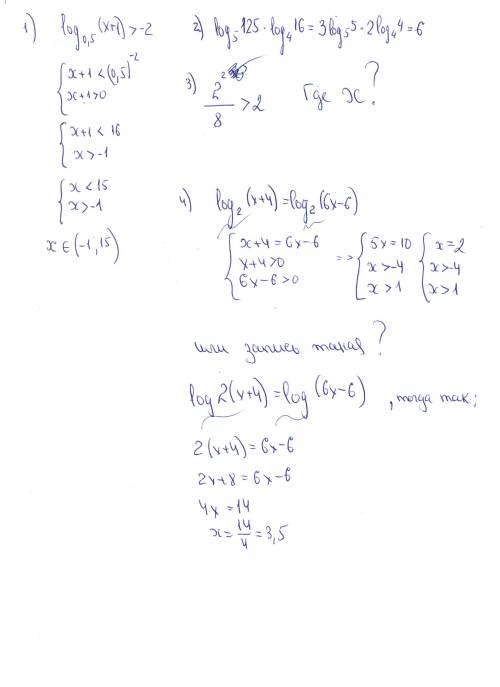 1) log₀,₅(x+1) > -2
{ x+1 < (0,5)⁻²
x+1>0
{ x+1 < 16
x > -1
{ x < 15
x > -1
x ∈ (-1; 15)
2) log₅125 · log₄16 = 3log₅5 · 2log₄4 = 6
3) 2²/8 > 2 Где x?
4) log₂(x+4) = log₂(6x-6)
{ x+4 = 6x-6
x+4>0
6x-6>0
=> { 5x = 10
x > -4
x > 1
{ x = 2
x > -4
x > 1
или запись такая?
log 2(x+4) = log (6x-6) , тогда так;
2(x+4) = 6x-6
2x+8 = 6x-6
4x = 14
x = 14/4 = 3,5